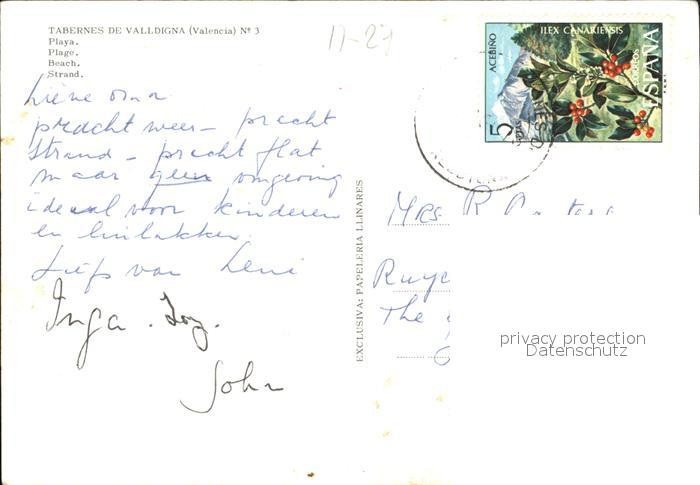 TABERNES DE VALLDIGNA (Valencia) Nº 3
Playa.
Plage.
Beach.
Strand.
17-27
Lieve oma
pracht weer - pracht
strand - pracht flat
maar geen omgeving
ideaal voor kinderen
en
Liefs van Leni
Inga. Joy.
John
EXCLUSIVA: PAPELERIA LLINARES
ACEBIÑO
ILEX CANARIENSIS
5 PTA
CORREOS
ESPAÑA
Mrs. R
Ruyc
The
privacy protection
Datenschutz